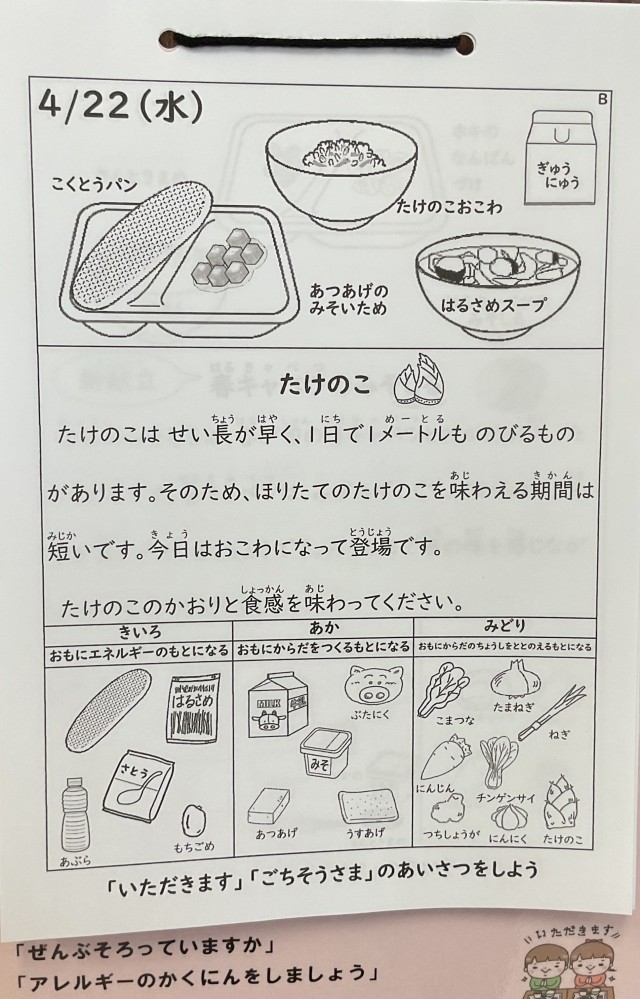 4/22(水)
B
こくとうパン
たけのこおこわ
ぎゅう
にゅう
あつあげの
みそいため
はるさめスープ
たけのこ
たけのこは せい長が早く、1日で1メートルも のびるもの
があります。そのため、ほりたてのたけのこを味わえる期間は
短いです。今日はおこわになって登場です。
たけのこのかおりと食感を味わってください。
きいろ
おもにエネルギーのもとになる
はるさめ
さとう
あぶら
もちごめ
あか
おもにからだをつくるもとになる
MILK
ぶたにく
みそ
あつあげ
うすあげ
みどり
おもにからだのちょうしをととのえるもとになる
こまつな
たまねぎ
ねぎ
にんじん
チンゲンサイ
つちしょうが
にんにく
たけのこ
「いただきます」「ごちそうさま」のあいさつをしよう
「ぜんぶそろっていますか」
「アレルギーのかくにんをしましょう」
いただきます